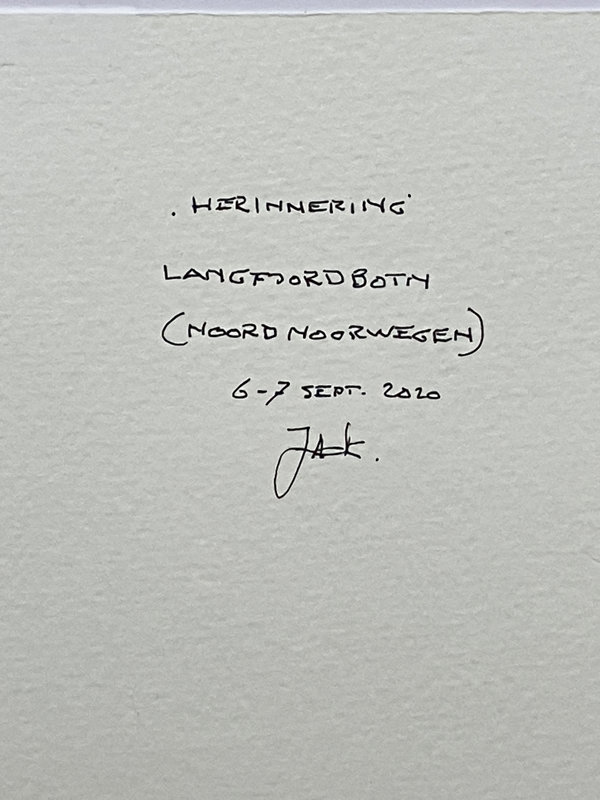 . HERINNERING
LANGFJORDBOTN
(NOORD NOORWEGEN)
6-7 SEPT. 2020
JACK.